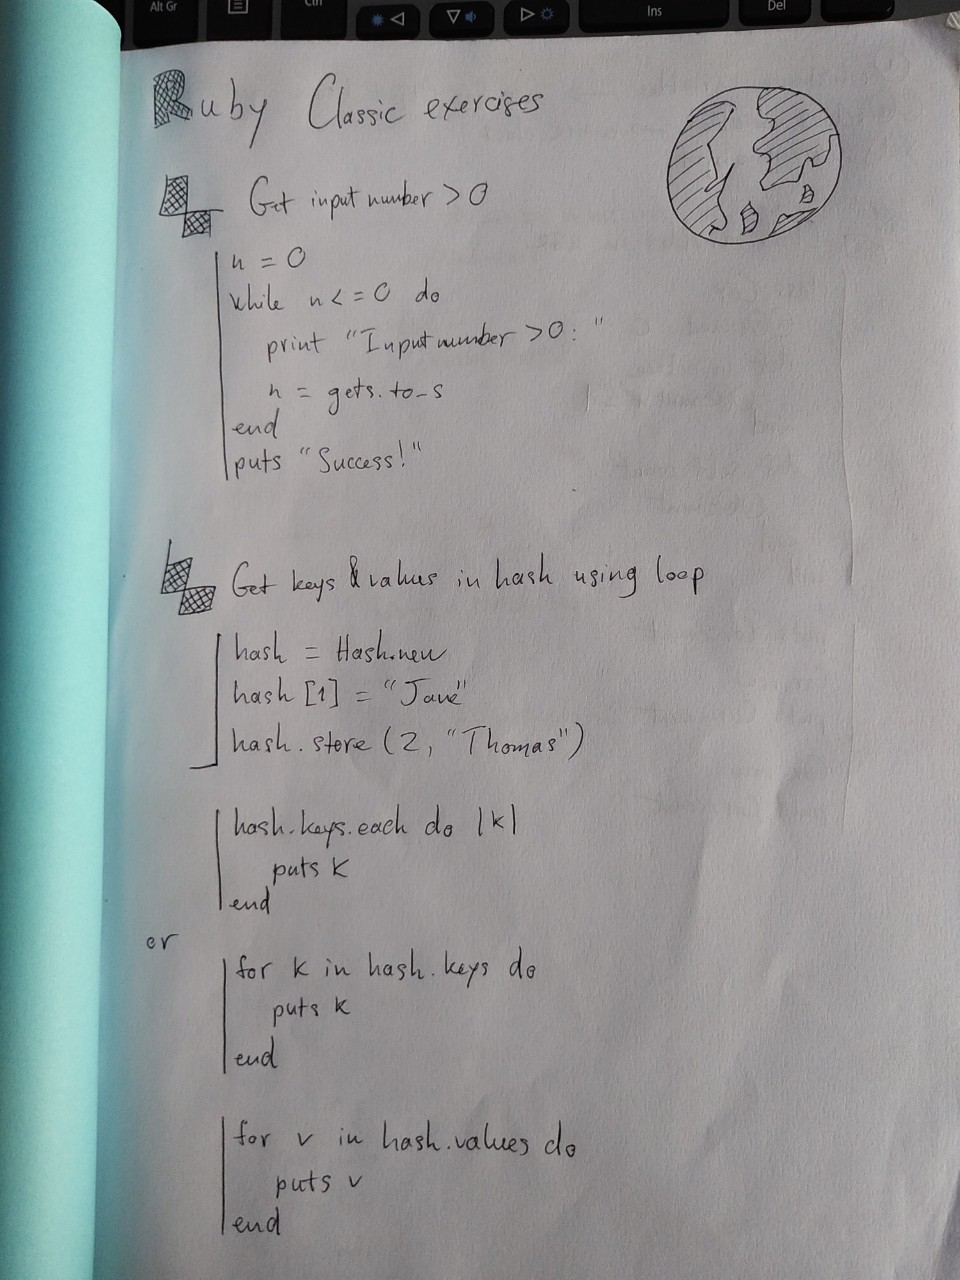 Alt Gr
Ctrl
Ins
Del
Ruby Classic exercises
Get input number > 0
n = 0
while n <= 0 do
print "Input number > 0: "
n = gets.to_s
end
puts "Success!"
Get keys & values in hash using loop
hash = Hash.new
hash [1] = "Jane"
hash.store (2, "Thomas")
hash.keys.each do |k|
puts k
end
or
for k in hash.keys do
puts k
end
for v in hash.values do
puts v
end